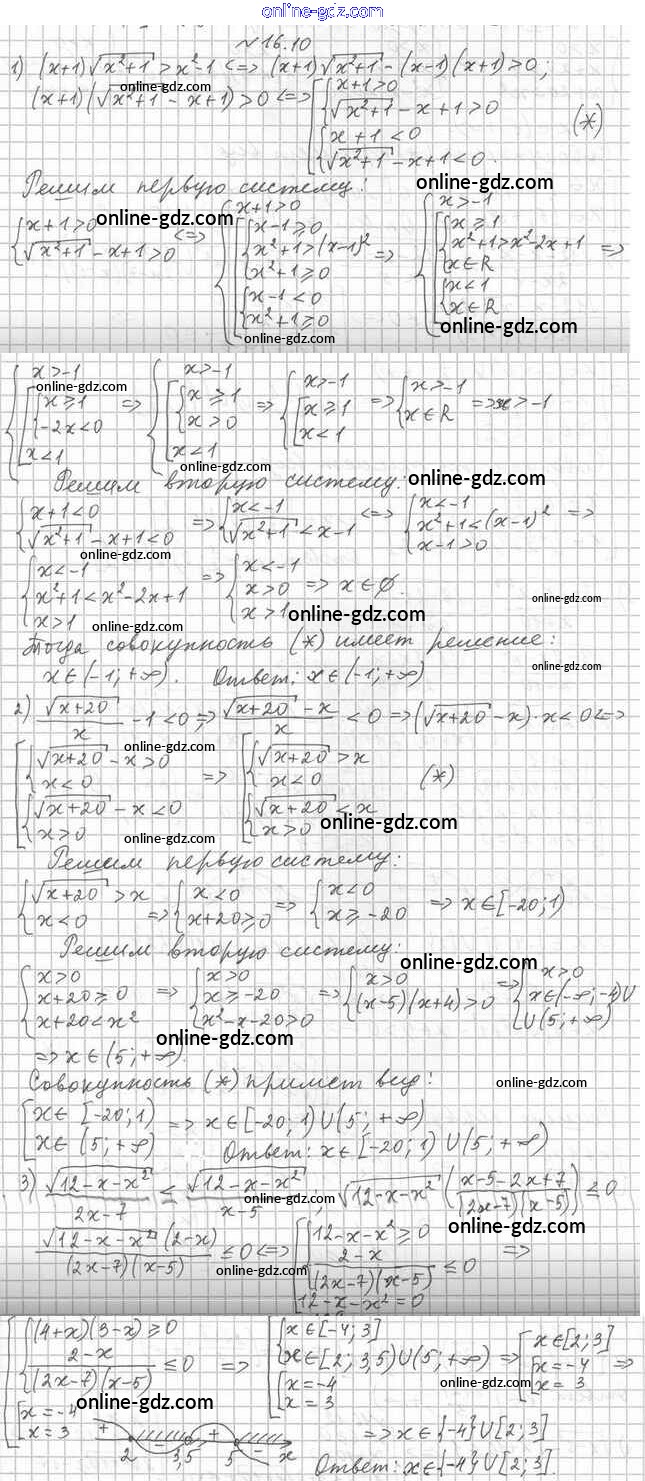 online-gdz.com
№16.10
1) (x+1)√(x²+1) > x²-1 <=> (x+1)√(x²+1) - (x-1)(x+1) > 0;
online-gdz.com
(x+1)(√(x²+1) - x+1) > 0 <=> [ { x+1>0
√(x²+1) - x+1 > 0
{ x+1<0
√(x²+1) - x+1 < 0. (*)
Решим первую систему: online-gdz.com
online-gdz.com
{ x+1>0
√(x²+1) - x+1 > 0 <=> { x+1>0
[ { x-1≥0
x²+1>(x-1)²
x²+1≥0
{ x-1<0
x²+1≥0 => { x>-1
[ { x≥1
x²+1>x²-2x+1
x∈R
{ x<1
x∈R =>
online-gdz.com
online-gdz.com
{ x>-1
[ { x≥1
-2x<0
x<1 => { x>-1
[ { x≥1
x>0
x<1 => { x>-1
[ x≥1
x<1 => { x>-1
x∈R => x>-1
online-gdz.com
online-gdz.com
Решим вторую систему: online-gdz.com
{ x+1<0
√(x²+1) - x+1 < 0 => { x<-1
√(x²+1) < x-1 <=> { x<-1
x²+1<(x-1)²
x-1>0 =>
online-gdz.com
{ x<-1
x²+1<x²-2x+1
x>1 => { x<-1
x>0
x>1 => x∈∅.
online-gdz.com
online-gdz.com
online-gdz.com
Тогда совокупность (*) имеет решение:
online-gdz.com
x∈(-1;+∞). Ответ: x∈(-1;+∞)
2) √(x+20)/x - 1 < 0 => (√(x+20) - x)/x < 0 => (√(x+20) - x)·x < 0 <=>
online-gdz.com
[ { √(x+20) - x > 0
x<0
{ √(x+20) - x < 0
x>0 => [ { √(x+20) > x
x<0
{ √(x+20) < x
x>0 (*)
online-gdz.com
online-gdz.com
Решим первую систему:
{ √(x+20) > x
x<0 => { x<0
x+20≥0 => { x<0
x≥-20 => x∈[-20;1)
Решим вторую систему:
online-gdz.com
{ x>0
x+20≥0
x+20<x² => { x>0
x≥-20
x²-x-20>0 => { x>0
(x-5)(x+4)>0 => { x>0
x∈(-∞;-4)∪
∪(5;+∞)
online-gdz.com
=> x∈(5;+∞).
Совокупность (*) примет вид: online-gdz.com
[ x∈[-20;1)
x∈(5;+∞) => x∈[-20;1)∪(5;+∞)
Ответ: x∈[-20;1)∪(5;+∞)
3) √(12-x-x²)/(2x-7) ≤ √(12-x-x²)/(x-5); √(12-x-x²)((x-5-2x+7)/((2x-7)(x-5))) ≤ 0
online-gdz.com
online-gdz.com
√(12-x-x²)(2-x)/((2x-7)(x-5)) ≤ 0 <=> [ { 12-x-x²≥0
(2-x)/((2x-7)(x-5)) ≤ 0
12-x-x²=0 =>
online-gdz.com
[ { (4+x)(3-x)≥0
(2-x)/((2x-7)(x-5)) ≤ 0
[ x=-4
x=3 => [ { x∈[-4;3]
x∈[2;3,5)∪(5;+∞)
[ x=-4
x=3 => [ x∈[2;3]
[ x=-4
x=3 =>
online-gdz.com
+ - + -
2 3,5 5 x
=> x∈{-4}∪[2;3]
online-gdz.com
Ответ: x∈{-4}∪[2;3].